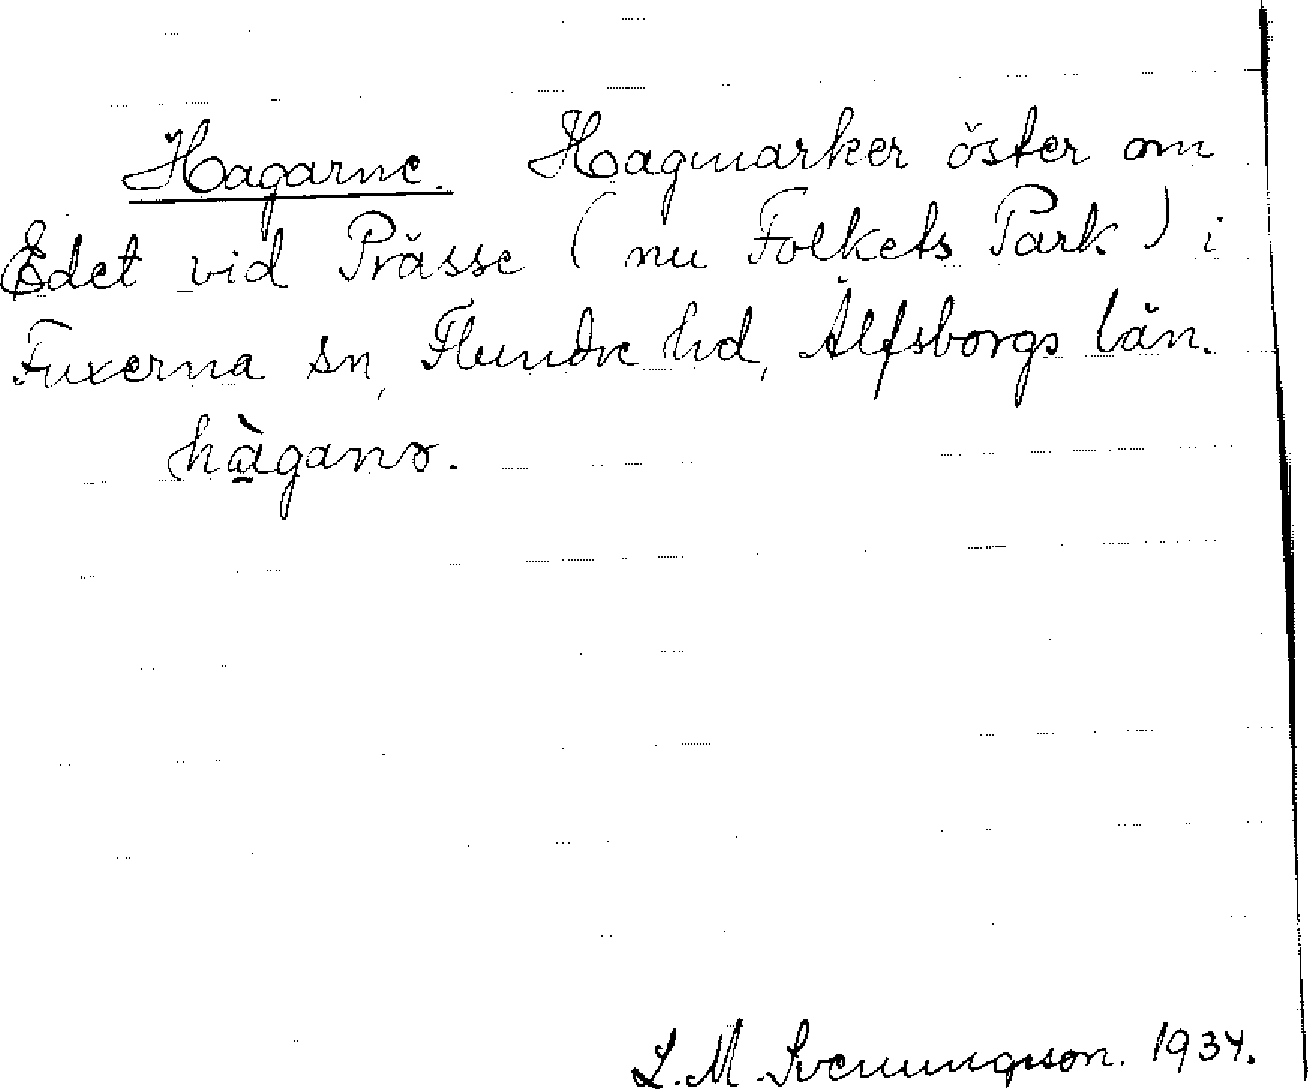 Hagarne. Hagmarker öster om
Edet vid Prässe (nu Folkets Park) i
Fuxerna sn, Flundre hd, Älfsborgs län.
hàganɤ.
L. M. Svenungsson. 1934.